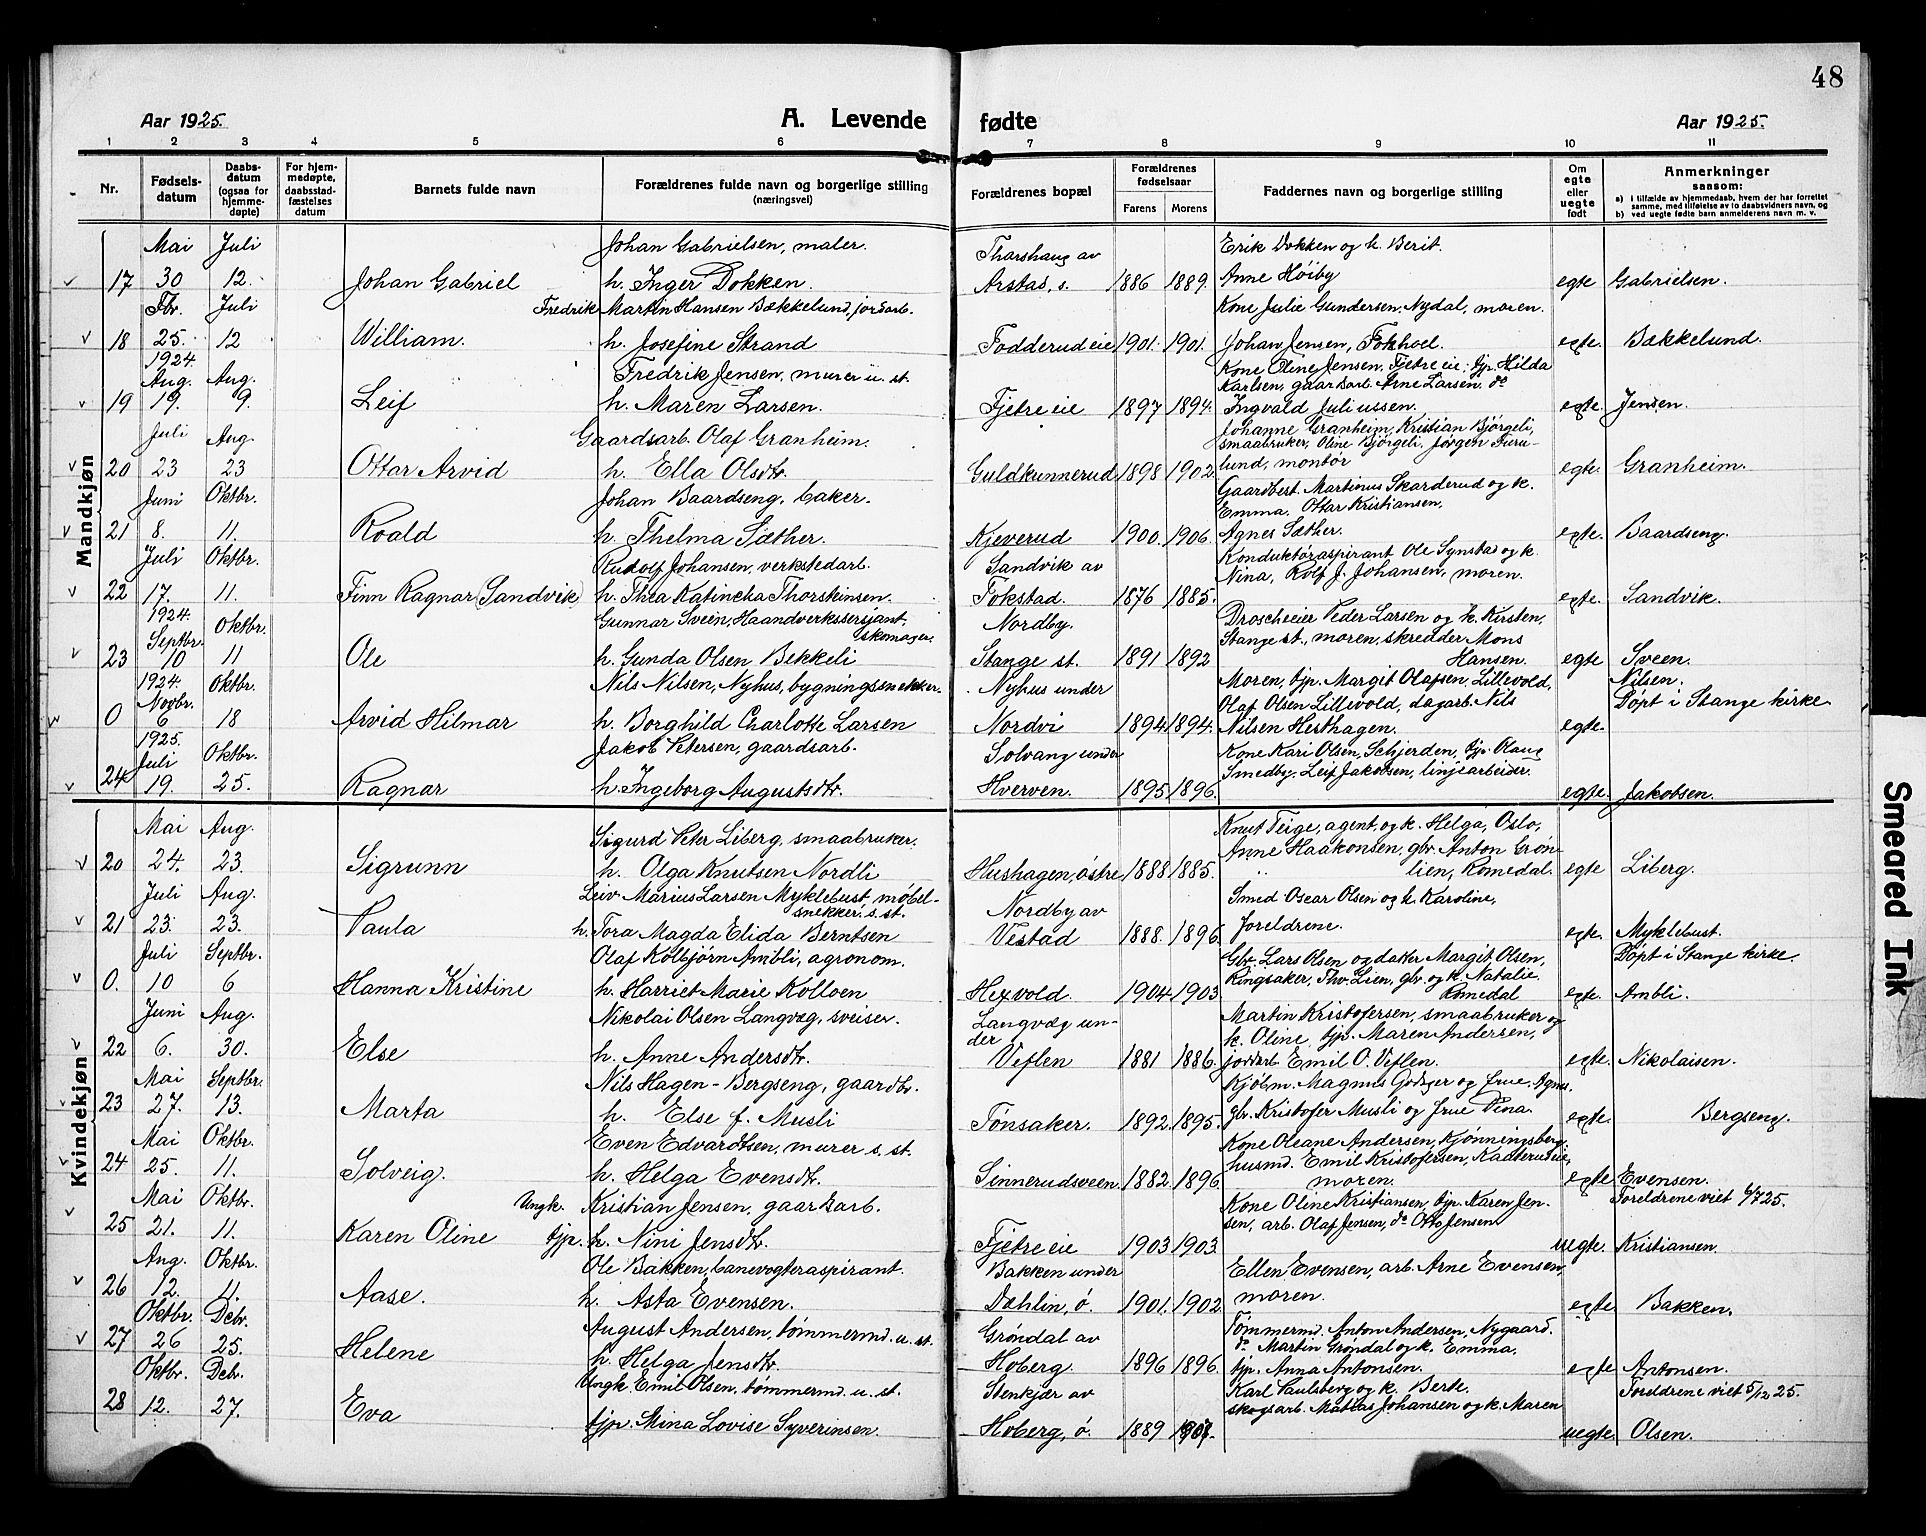 48
Aar 1925. A. Levende fødte Aar 1925.
1 2 3 4 5 6 7 8 9 10 11
Nr. Fødsels-datum Daabs-datum (ogsaa for hjemme-døpte) For hjem-medøpte, daabsstad-fæstelses datum Barnets fulde navn Forældrenes fulde navn og borgerlige stilling (næringsvei) Forældrenes bopæl Forældrenes fødselsaar Farens Morens Faddernes navn og borgerlige stilling Om egte eller uegte født Anmerkninger saasom:
a) i tilfælde av hjemmedaab, hvem der har forrettet samme, med tilføielse av to daabsvidners navn, og
b) ved uegte fødte barn anmelderens navn m. v.
Mandkjøn
Mai Juli Johan Gabrielsen, maler. Tharshaug av Erik Dokken og k. Berit.
17 30 12. Johan Gabriel h. Inger Dokken. Arstad, s. 1886 1889. Anne Høiby egte Gabrielsen.
Fbr. Juli Fredrik Martin Hansen Bækkelund, jordarb. Kone Julie Gundersen, Nydal, moren.
18 25. 12 William. h. Josefine Strand Fodderud eie 1901. 1901. Johan Jensen, Fokhoel. egte. Bækkelund.
1924 Aug. Aug. Fredrik Jensen, murer u. st. Kone Oline Jensen, Fjetre eie, tjp. Hilda
Karlsen, gaardarb. Arne Larsen, do
19 19. 9. Leif h. Maren Larsen. Fjetre eie 1897 1894. Ingvald Juliussen. egte. Jensen.
Juli Aug. Gaardsarb. Olaf Granheim. Johanne Granheim, Kristian Bjørgeli,
smaabruker, Oline Bjørgeli, Jørgen Furu-
20 23 23 Ottar Arvid h. Ella Olsdtr. Guldkunnerud 1898 1902. lund, montør egte. Granheim.
Juni Oktbr. Johan Baardseng, baker. Gaardbest. Martinus Skarderud og k.
Emma, Ottar Kristiansen,
21 8. 11. Roald h. Thelma Sæther. Kjeverud 1900. 1906. Agnes Sæther. egte. Baardseng.
Juli Oktbr. Rudolf Johansen, verkstedarb. Sandvik av Konduktøraspirant Ole Synstad og k.
Nina, Rolf J. Johansen, moren.
22 17. 11. Finn Ragnar (Sandvik) h. Thea Katincka Thorstensen. Fokstad. 1876 1885. egte. Sandvik.
1924. Septbr. Oktbr. Gunnar Sveen, Haandverkssersjant, skomager. Nordby. Droscheeier Peder Larsen og k. Kirsten,
Stange st., moren, skredder Mons
23 10 11 Ole h. Gunda Olsen Bekkeli Stange st. 1891 1892 Hansen. egte Sveen.
1924. Novbr. Oktbr. Nils Nilsen, Nyhus, bygningssnekker. Nyhus under Moren, tjp. Margit Olafsen, Lillevold, Nilsen.
Olaf Olsen Lillevold, dagarb. Nils Døpt i Stange kirke.
0 6 18 Arvid Hilmar h. Borghild Charlotte Larsen Nordvi 1894 1894. Nilsen Hesthagen. egte.
1925. Juli Oktbr. Jakob Petersen, gaardsarb. Solvang under Kone Kari Olsen, Schjerden, tjp. Olaug
Smedby, Leif Jakobsen, linjearbeider.
24 19. 25. Ragnar h. Ingeborg Augustsdtr. Hverven. 1895 1896. egte. Jakobsen.
Kvindekjøn
Mai Aug. Sigurd Peter Liberg, smaabruker. Knut Teige, agent, og k. Helga, Oslo,
Anne Haakonsen, gbr Anton Grøn-
20 24. 23. Sigrunn h. Olga Knutsen Nordli Hushagen, østre 1888 1885. lien, Romedal. egte Liberg.
Juli Aug. Leiv Marius Larsen Myklebust, møbel-snekker s. st. Nordby av Smed Oscar Olsen og k. Karoline,
21 23. 23. Paula h. Tora Magda Elida Berntsen Vestad 1888. 1896. foreldrene. egte. Myklebust.
Juli Septbr. Olaf Kolbjørn Ambli, agronom. Gbr. Lars Olsen og datter Margit Olsen, Døpt i Stange kirke
Ringsaker, Thv. Lien, gbr og k. Natalie
0. 10 6 Hanna Kristine h. Harriet Marie Kolloen Hexvold 1904. 1903 Romedal egte. Ambli.
Juni Aug. Nikolai Olsen Langvæg, sveiser. Langvæg un-der Martin Kristofersen, smaabruker og
k. Oline, tjp. Maren Andersen,
22 6. 30. Else h. Anne Andersdtr. Veflen 1881 1886. jordarb. Emil O. Veflen. egte. Nikolaisen.
Mai Septbr. Nils Hagen-Bergseng, gaardbr. Kjøbm. Magnus Godager og frue, Agnes,
23 27. 13. Marta h. Else f. Musli Tønsaker. 1892 1895. gbr. Kristofer Musli og frue Dina. egte. Bergseng.
Mai Oktbr. Even Edvardtsen, murer s. st. Kone Oleane Andersen, Kjønningsberg,
husmd. Emil Kristofersen, Kaaterudeie,
24 25. 11. Solveig. h. Helga Evensdtr. Sinnerudsveen. 1882. 1896. moren. egte. Evensen.
Mai Oktbr. Ungk. Kristian Jensen, gaardarb. Kone Oline Kristiansen, tjp. Karen Jen- Foreldrene viet 4/7 25.
sen, arb. Olaf Jensen, do Otto Jensen
25 21. 11. Karen Oline tjp. h. Nini Jensdtr. Fjetre eie 1903 1903. uegte. Kristiansen
Aug. Oktbr. Ole Bakken, banevogteraspirant. Bakken under Ellen Evensen, arb. Arne Evensen,
26 12. 11. Aase. h. Asta Evensen. Dæhlin, ø. 1901. 1902. moren. egte Bakken.
Oktbr. Debr. August Andersen, tømmermd. u. st. Grøndal av Tømmermd. Anton Andersen, Nygaard.
do Martin Grøndal og k. Emma,
27 26 25. Helene h. Helga Jensdtr. Hoberg. 1896 1896. tjp. Anna Antonsen. egte Antonsen.
Oktbr. Debr. Ungk. Emil Olsen, tømmermd. u. st. Stenkjær av Karl Paulsberg og k. Berte. Foreldrene viet 5/12 25.
skogsarb. Matias Johansen og k. Maren
28 12. 27. Eva tjp. Mina Lovise Syverinsen. Hoberg, ø. 1889 uegte. Olsen.
Smeared Ink